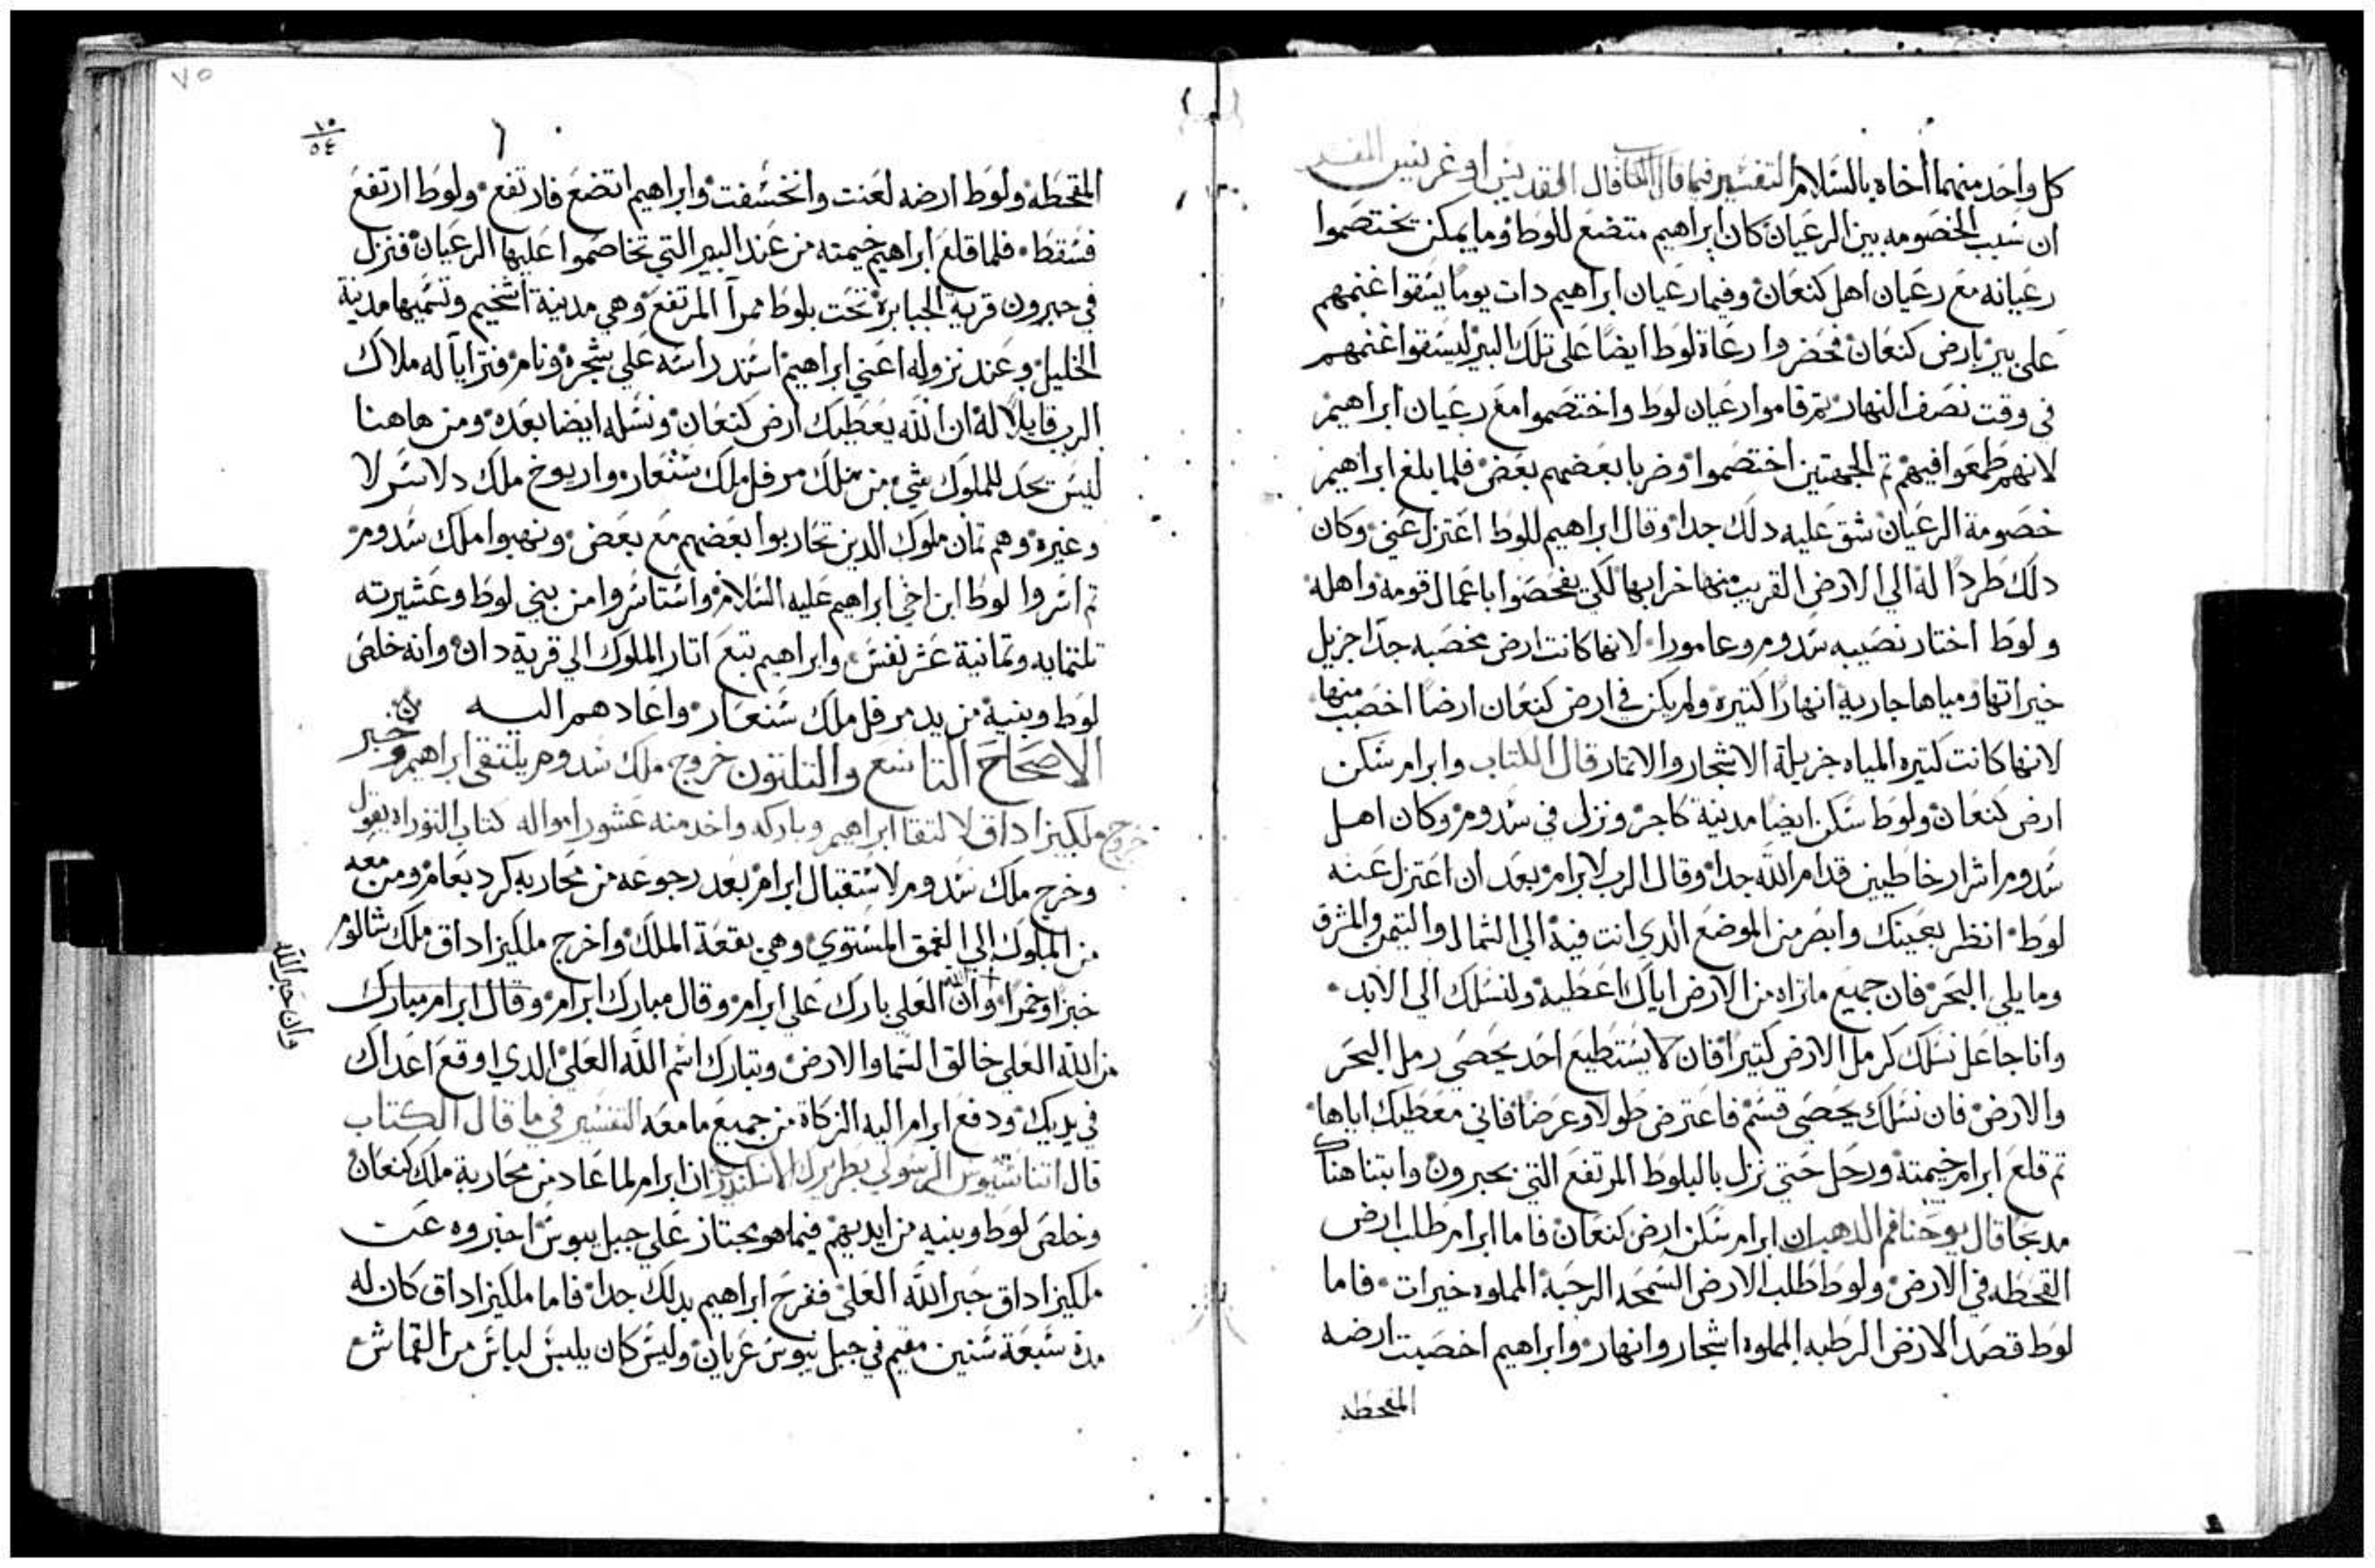 كل واحد منهما أخاه بالسلام التفسير فيما قال الكتاب قال القديس اوغريس المفسر
ان سبب الخصومه بين الرعيان كان ابراهيم متضع للوط وما يمكن يختصموا
رعيانه مع رعيان اهل كنعان وفيما رعيان ابراهيم دات يوما يسقوا غنمهم
على بير بارض كنعان فحضروا رعاة لوط ايضا على تلك البير ليسقوا غنمهم
في وقت نصف النهار تم قاموا رعيان لوط واختصموا مع رعيان ابراهيم
لانهم طمعوا فيهم تم الجهتين اختصموا وضربا بعضهم بعض فلما بلغ ابراهيم
خصومة الرعيان شق عليه دلك جدا وقال ابراهيم للوط اعتزل عني وكان
دلك طردا له الي الارض القريب منها خرابها لكي يفحصوا باعمال قومه واهله
ولوط اختار نصيبه سدوم وعامورا لانها كانت ارض مخصبه جدا جزيل
خيراتها ومياها جارية انهارا كتيرة ولم يكن في ارض كنعان ارضا اخصب منها
لانها كانت كتيره المياه جزيلة الاشجار والاتمار قال الكتاب وابرام سكن
ارض كنعان ولوط سكن ايضا مدينة كاجر ونزل في سدوم وكان اهل
سدوم اشرار خاطيين قدام الله جدا وقال الرب لابرام بعد ان اعتزل عنه
لوط انظر بعينك وابصر من الموضع الدي انت فيه الي الشمال والتيمن والمشرق
وما يلي البحر فان جميع ما تراه من الارض اياك اعطيه ولنسلك الي الابد
وانا جاعل نسلك كرمل الارض كتيرا فان لا يستطيع احد يحصي رمل البحر
والارض فان نسلك يحصي قسم فاعترض طولا وعرضا فاني معطيك اياها
تم قلع ابرام خيمته ورحل حتي نزل بالبلوط المرتفع التي بحبرون وابتنا هناك
مدبحا قال يوحنا فم الدهب ان ابرام سكن ارض كنعان فاما ابرام طلب ارض
القحطه في الارض ولوط طلب الارض السمحه الرحبة المملوه خيرات فاما
لوط قصد الارض الرطبه المملوه اشجار وانهار وابراهيم اخصبت ارضه
المقحطه
٧٥
١٠
٥٤
المقحطه ولوط ارضه لعنت وانخسفت وابراهيم اتضع فارتفع ولوط ارتفع
فسقط فلما قلع ابراهيم خيمته من عند البير التي تخاصموا عليها الرعيان فنزل
في حبرون قرية الجبابرة تحت بلوط ممرا المرتفع وهي مدينة اشخيم وتسميها مدينة
الخليل وعند نزوله اعني ابراهيم اسند راسه علي شجره ونام فترايا له ملاك
الرب قايلا له ان الله يعطيك ارض كنعان ونسله ايضا بعده ومن هاهنا
ليس يحد للملوك شي من ملك مرفل ملك شنعار واريوخ ملك دلاسر لا
وغيره وهم تمان ملوك الدين تحاربوا بعضهم مع بعض ونهبوا ملك سدوم
تم اسروا لوط ابن اخي ابراهيم عليه السلام واستاسروا من بني لوط وعشيرته
تلتمايه وتمانية عشر نفس وابراهيم تبع اتار الملوك الي قرية دان وانه خلص
لوط وبنيه من يد مرفل ملك شنعار واعادهم اليه
الاصحاح التاسع والتلتون خروج ملك سدوم يلتقي ابراهيم وخبر
خروج ملكيزاداق لالتقا ابراهيم وباركه واخد منه عشور امواله كتاب التوراه يقول
وخرج ملك سدوم لاستقبال ابرام بعد رجوعه من محاربه كردبعام ومن معه
من الملوك الي الغمق المستوي وهي بقعة الملك واخرج ملكيزاداق ملك شالوم
خبزا وخمرا وان الله العلي بارك علي ابرام وقال مبارك ابرام وقال ابرام مبارك
وان خبر الله
من الله العلي خالق السما والارض وتبارك اسم الله العلي الدي اوقع اعداك
في يديك ودفع ابرام اليه الزكاة من جميع ما معه التفسير في ما قال الكتاب
قال اتناسيوس الرسولي بطريرك الاسكندريه ان ابرام لما عاد من محاربة ملك كنعان
وخلص لوط وبنيه من ايديهم فيما هو يجتاز علي جبل يبوس اخبروه عن
ملكيزاداق حبر الله العلي ففرح ابراهيم بدلك جدا فاما ملكيزاداق كان له
مدة سبعة سنين مقيم في جبل يبوس عريان وليس كان يلبس لباس من القماش